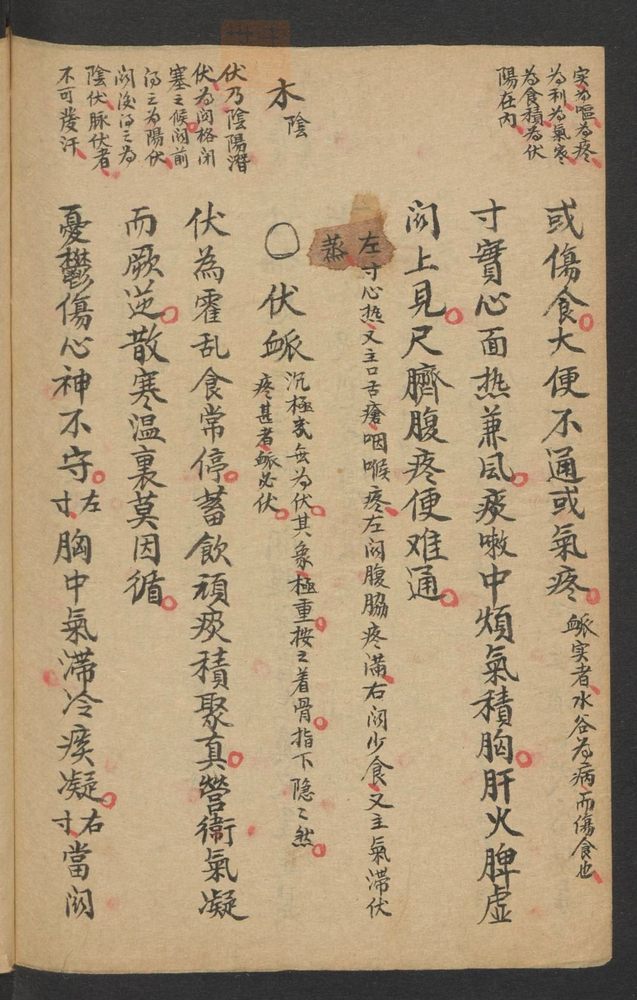 实为嘔为疼
为利为氣寒
为食積为伏
陽在內
或傷食大便不通或氣疼脈实者水谷为病而傷食也
寸實心面热兼风痰嗽中煩氣積胸肝火脾虚
関上見尺臍腹疼便难通
左寸心热又主口舌瘡咽喉疼左関腹脇疼滿右関少食又主氣滞伏
蒸
木陰
○伏脈
沉極或無为伏其象極重按之着骨指下隐々然
疼甚者脈必伏
伏乃陰陽潛
伏为関格闭
塞之候関前
得之为陽伏
関後得之为
陰伏脉伏者
不可發汗
伏為霍乱食常停蓄飲頑痰積聚真營衛氣凝
而厥逆散寒温裏莫因循
憂鬱傷心神不守左寸胸中氣滞冷痰凝右寸當関